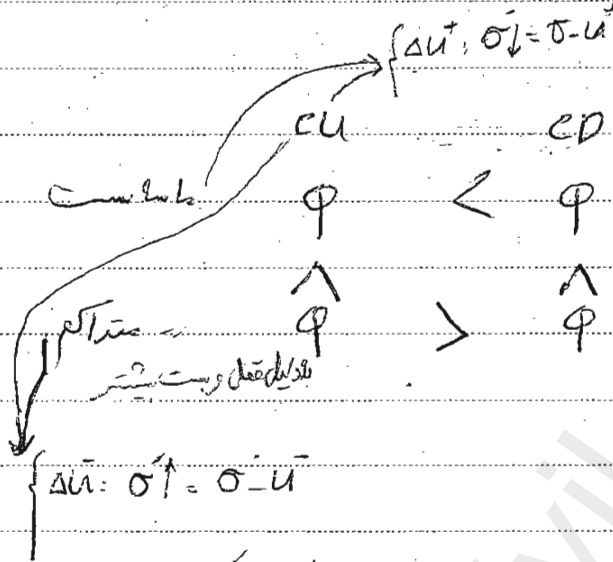 {ΔU⁺: σ′↓ = σ - U⁺
CU CD
ماسه سست φ < φ
∧ ∧
" متراکم φ > φ
بدلیل قفل و بست بیشتر
{ΔU⁻: σ′↑ = σ - U⁻